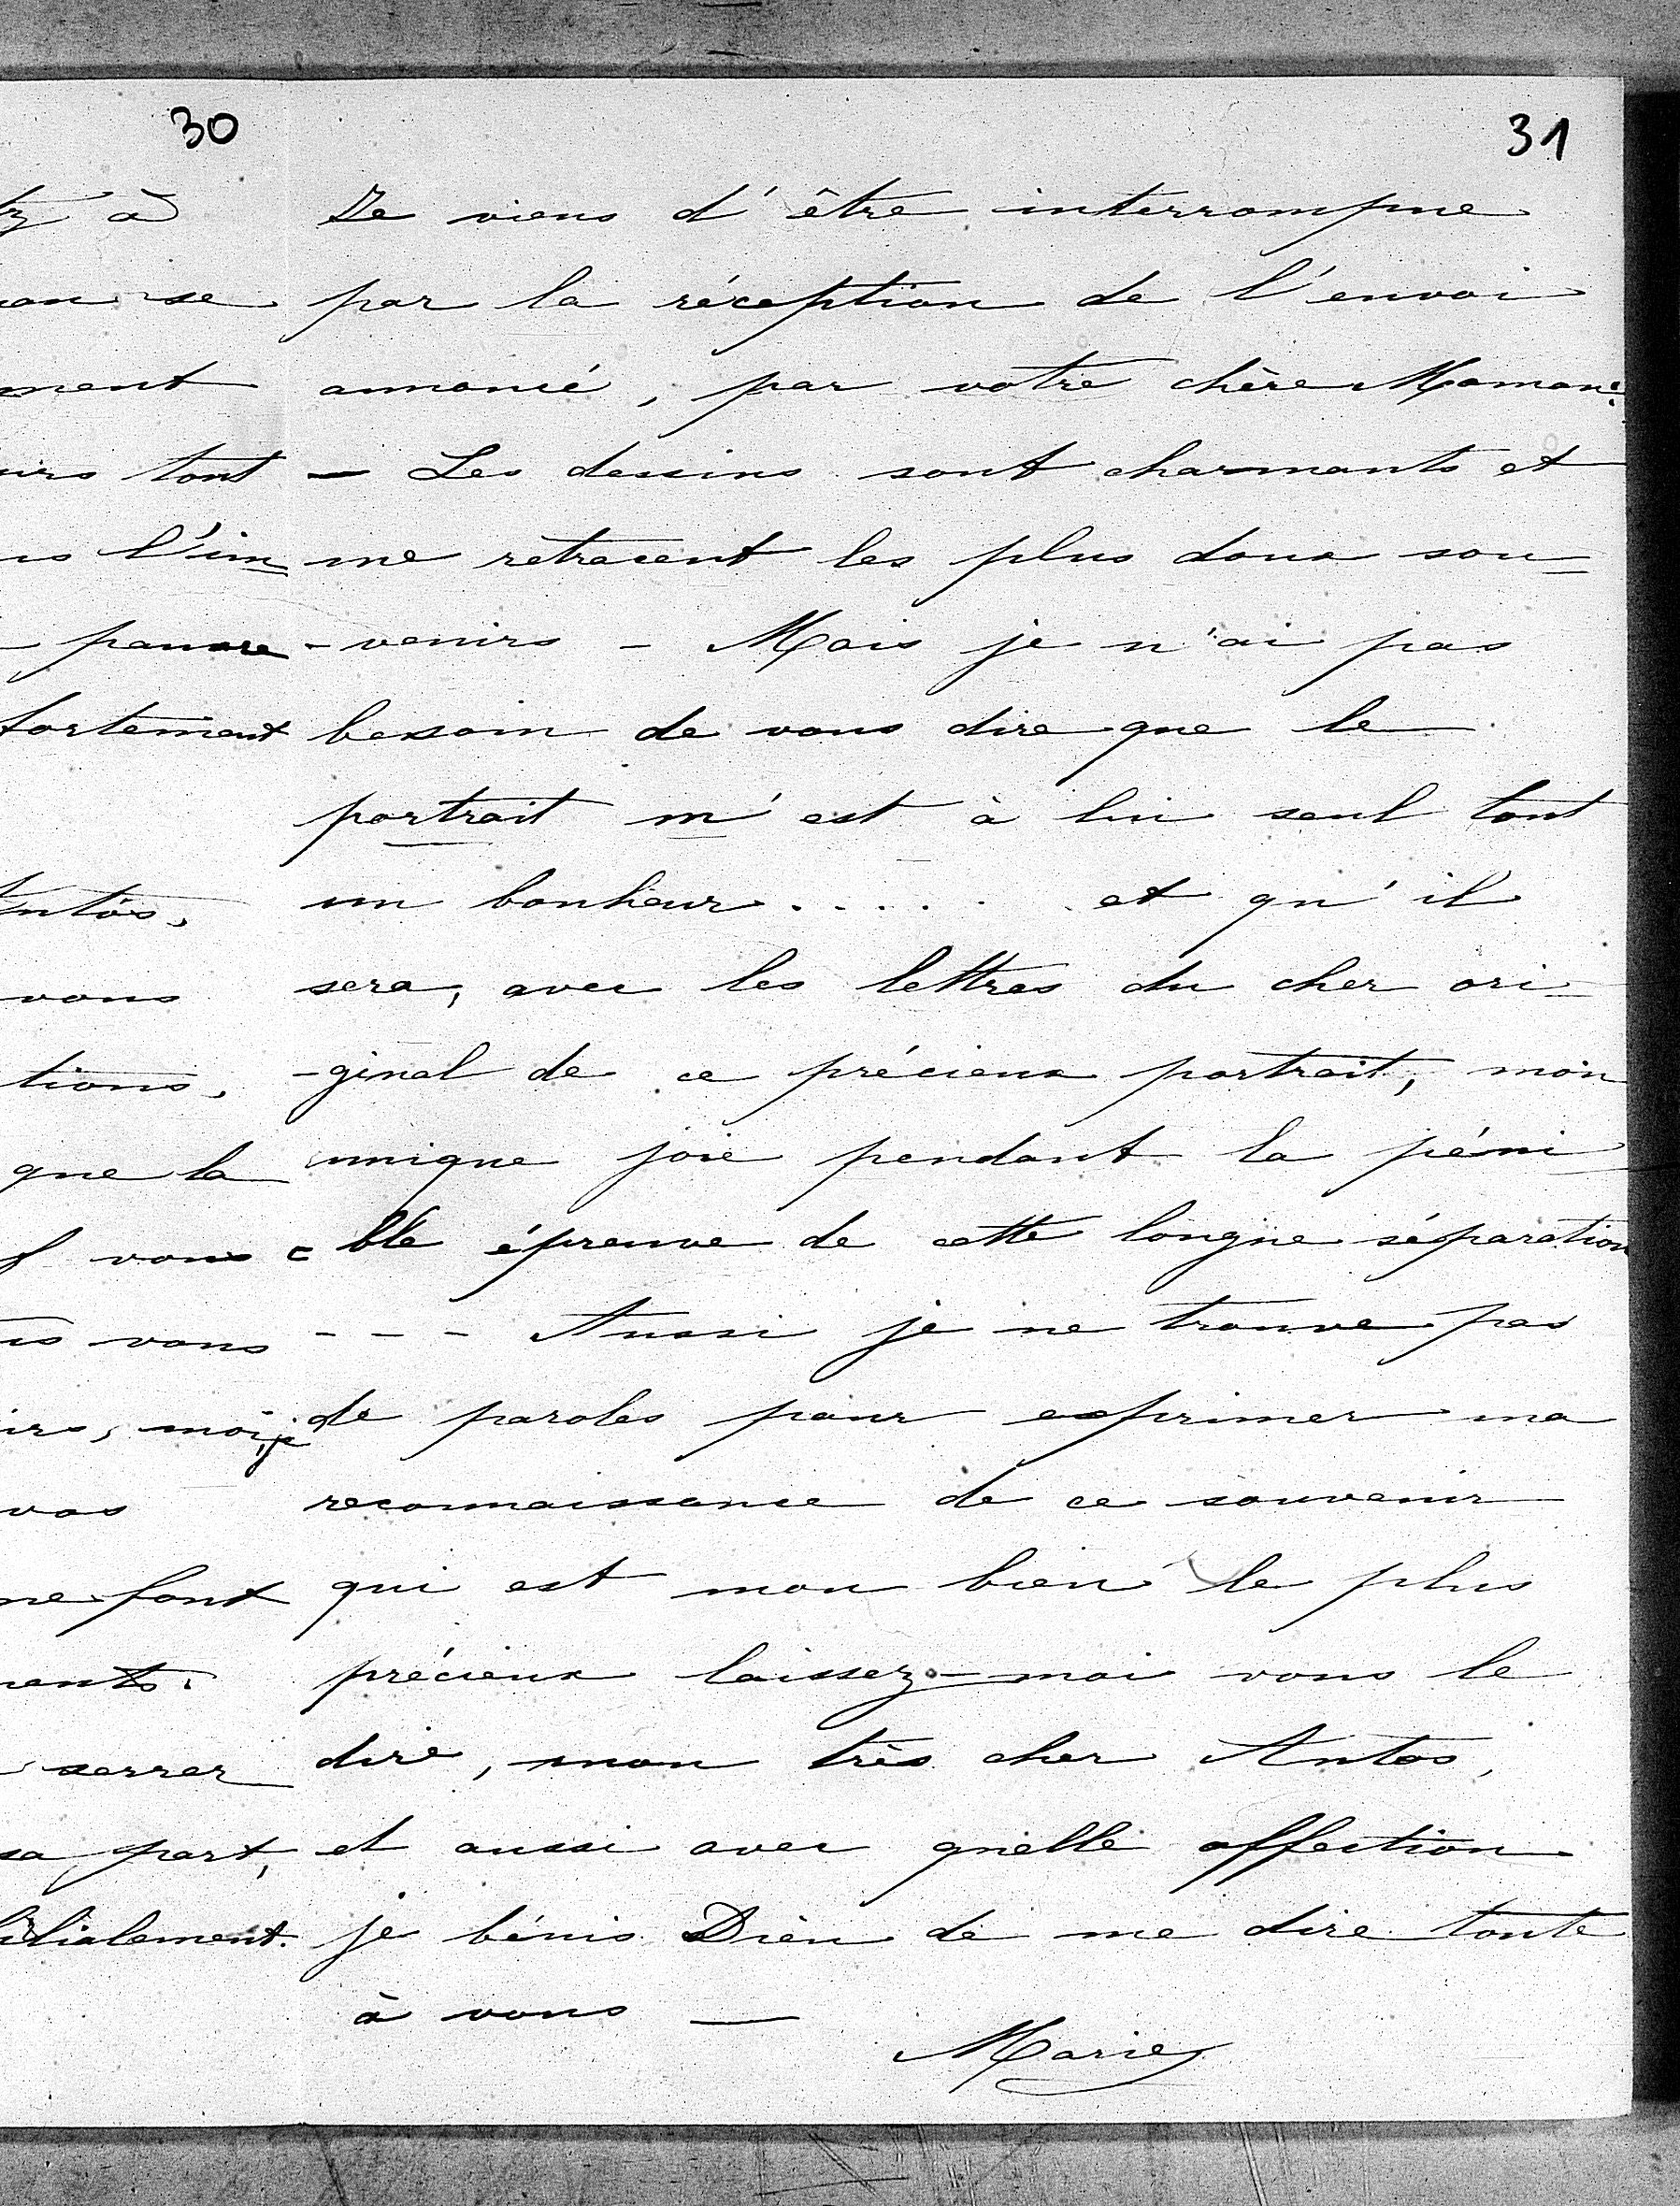 30
tz à
man se
ment
irs tout
ns l'im
pauvre
fortement
Antos,
vous
tions,
que la
vous
is vous
irs, moi, je
vos
me font
ments.
serrer
sa part,
filialement.
31
Je viens d'être interrompue
par la réception de l'envoi
annoncé, par votre chère Maman.
- Les dessins sont charmants et
me retracent les plus doux sou=
-venirs - Mais je n'ai pas
besoin de vous dire que le
portrait m'est à lui seul tout
un bonheur...... et qu'il
sera, avec les lettres du cher ori=
-ginal de ce précieux portrait, mon
unique joie pendant la péni
=ble épreuve de cette longue séparation
- - - Aussi je ne trouve pas
de paroles pour exprimer ma
reconnaissance de ce souvenir
qui est mon bien le plus
précieux laissez-moi vous le
dire, mon très cher Antos,
et aussi avec quelle affection
je bénis Dieu de me dire toute
à vous —
Marie